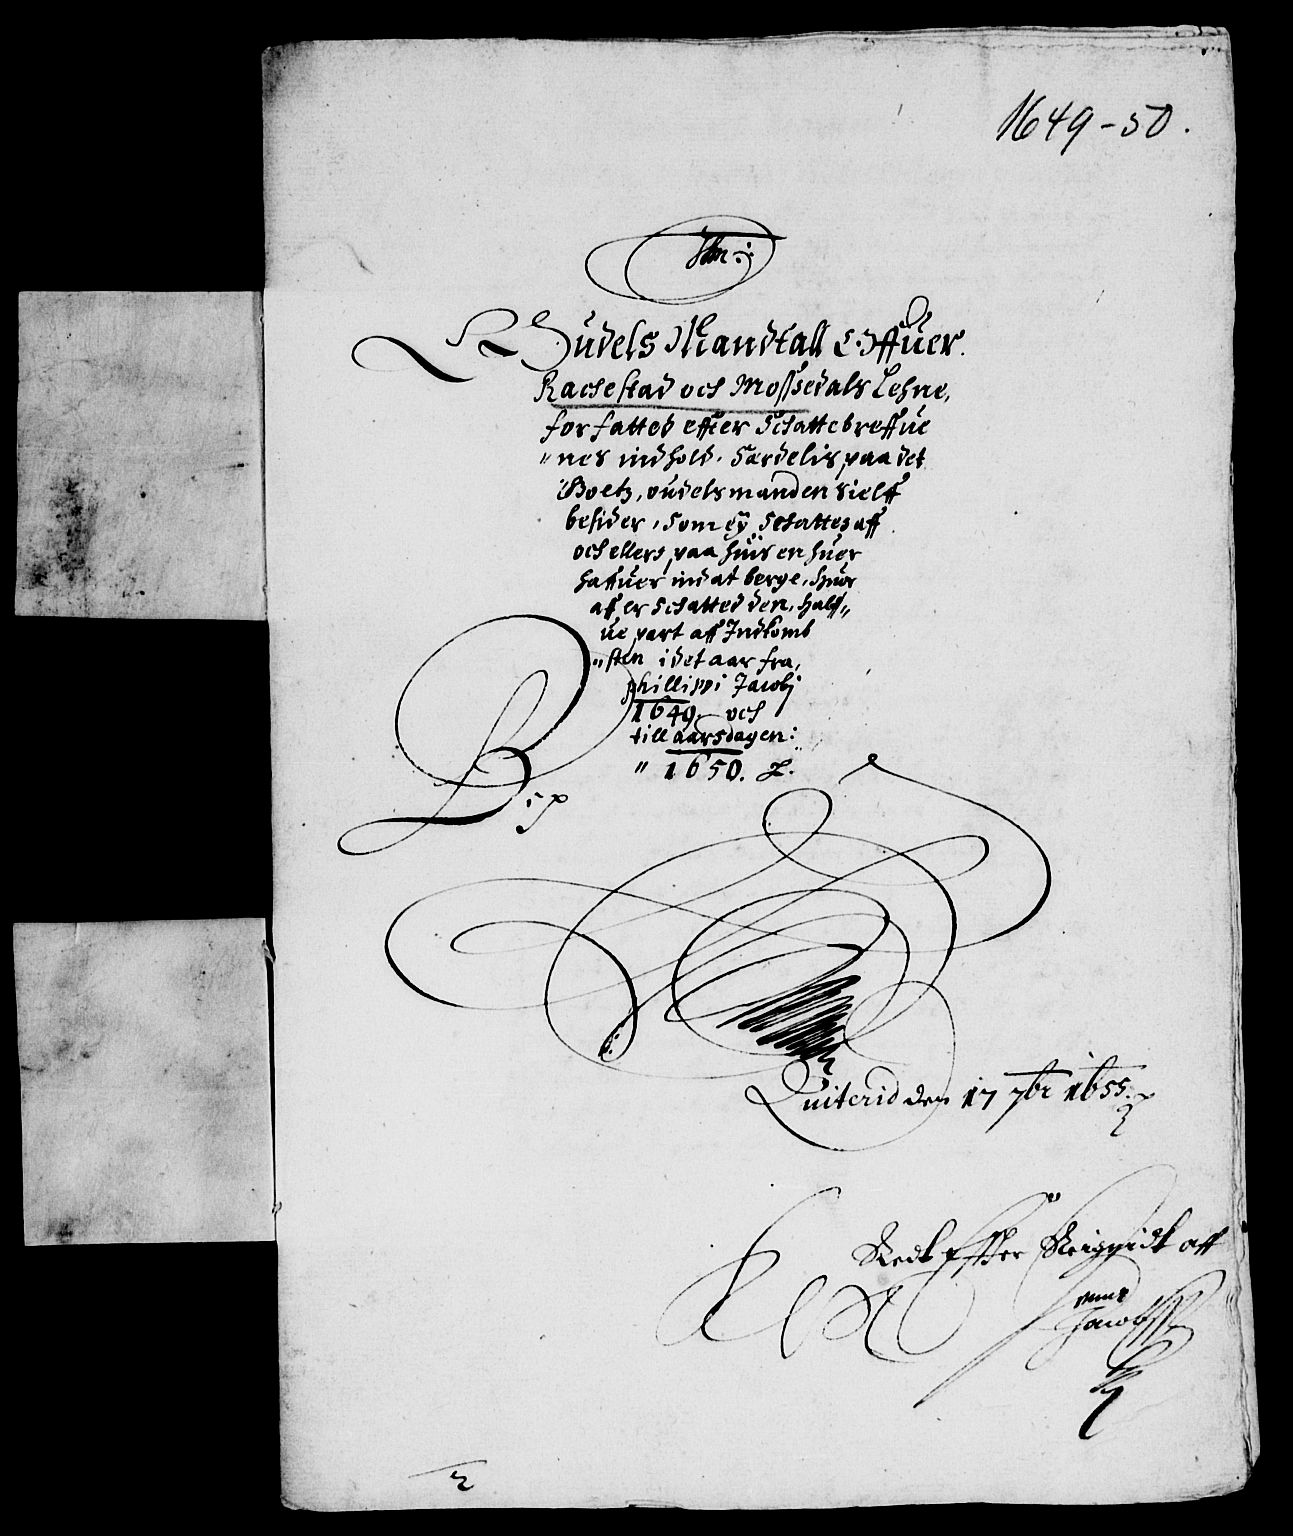 1649-50.
Oudels Mandtall Offuer
Rachestad och Mossedals Lehne,
forfatted effter Schattebreffue
"nes indhold. Særdelis paa det
Goetz, oudelsmanden sielff
besider, som eÿ Schattes aff
och ellers, paa huis en huer
haffuer ind at berge, huor
aff er Schatted den, halff"
ue part aff Indkomb
"sten i det aar fra,
phillippi Jacobj
1649 och
till aarsdagen:
" 1650.
Quiterid den 17 7br 1655.
Jacobss